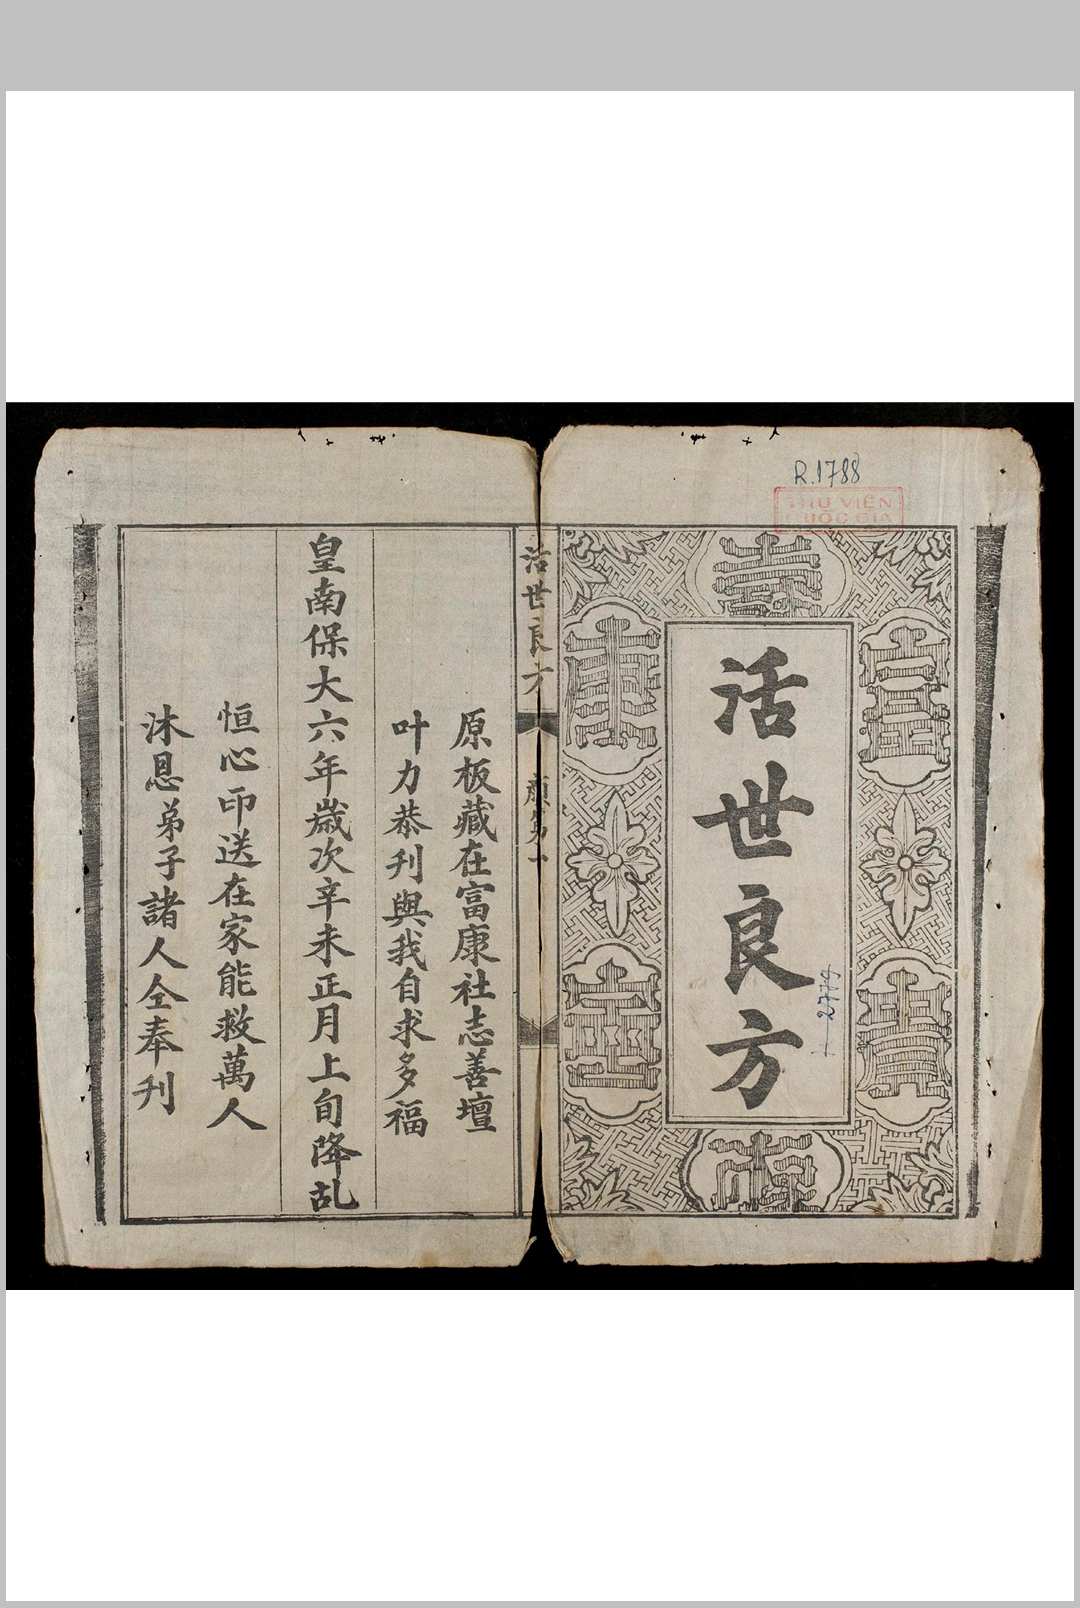 R.1788
THƯ VIỆN
QUỐC GIA
壽
富
康
貴
寧
活世良方
2774
活世良方
原板藏在富康社志善壇
叶力恭刋與我自求多福
皇南保大六年歲次辛未正月上旬降乩
恒心印送在家能救萬人
沐恩弟子諸人仝奉刋